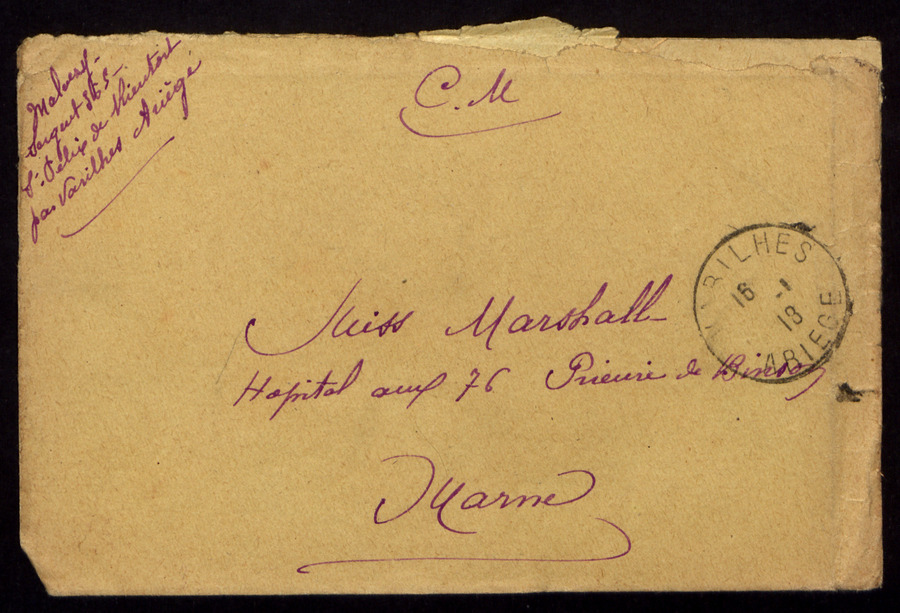 Sergent
St. Félix de Rieutort
par Varilhes Ariège
C. M
Miss Marshall
Hopital aux 76 Prieuré de Binson
Marne
VARILHES
16
18
ARIEGE